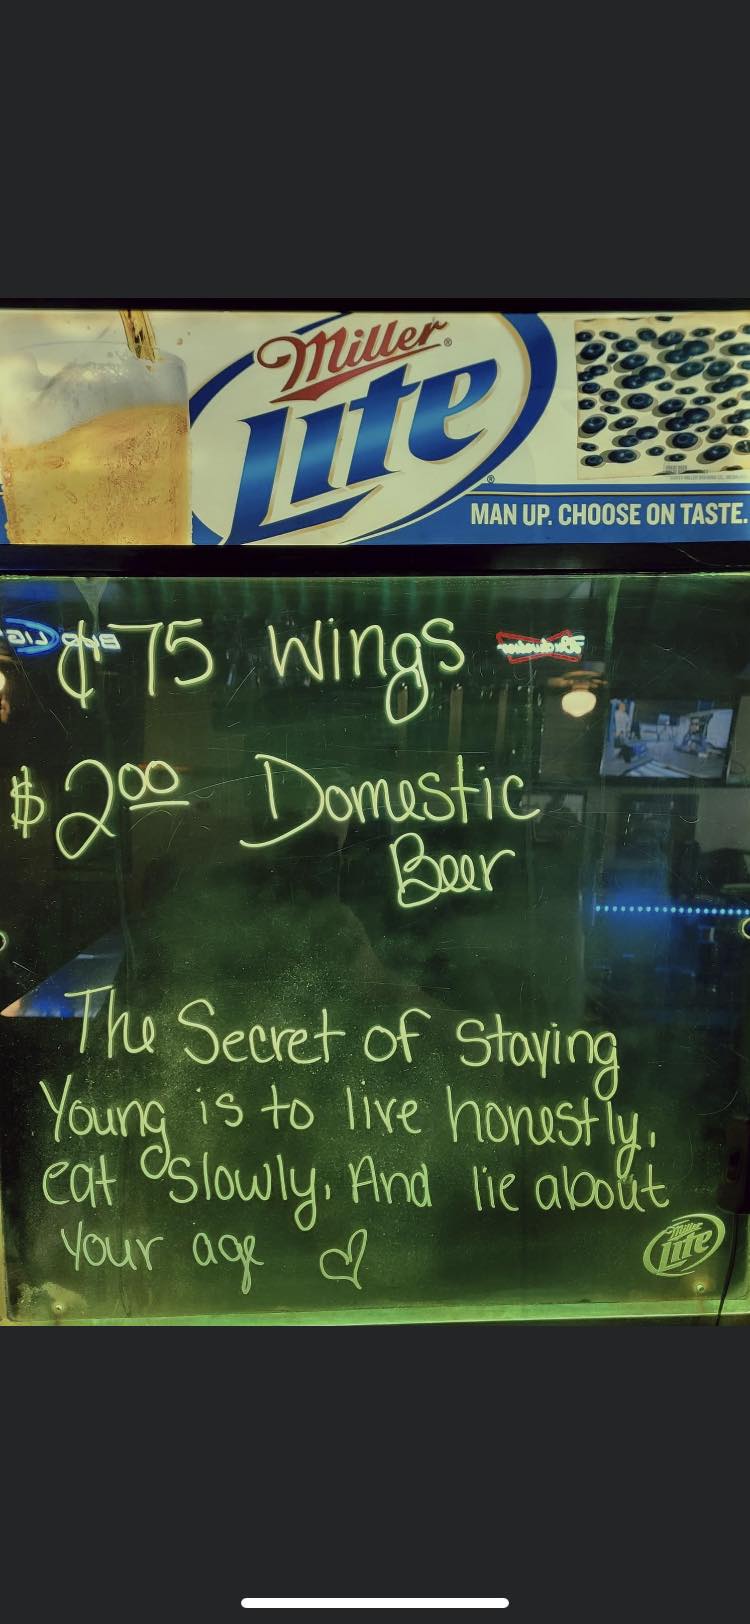 Miller
Lite
MAN UP. CHOOSE ON TASTE.
¢75 Wings
$2.00 Domestic
Beer
The Secret of Staying
Young is to live honestly,
eat slowly, And lie about
Your age ♡
Miller
Lite